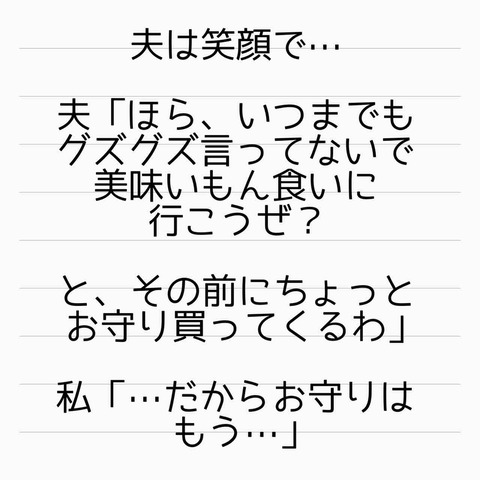 夫は笑顔で…
夫「ほら、いつまでも
グズグズ言ってないで
美味いもん食いに
行こうぜ？
と、その前にちょっと
お守り買ってくるわ」
私「…だからお守りは
もう…」